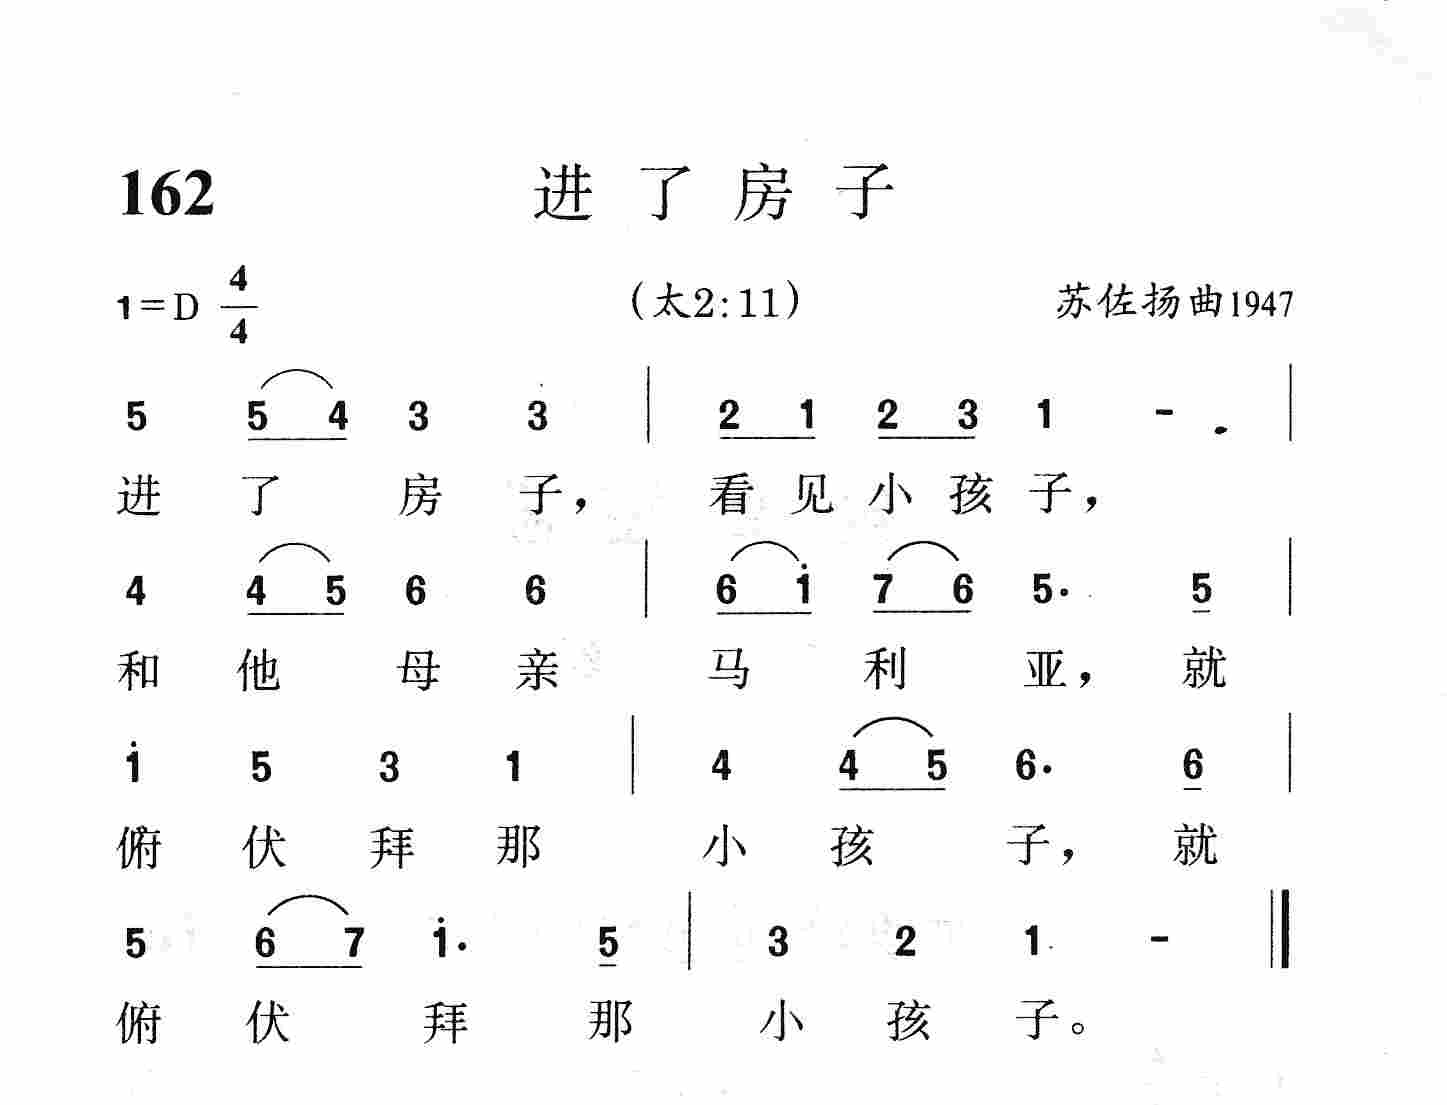 162 进了房子
1=D 4/4 (太2:11) 苏佐扬曲1947
5 5 4 3 3 | 2 1 2 3 1 - |
进了房子，看见小孩子，
4 4 5 6 6 | 6 i 7 6 5· 5 |
和他母亲马利亚，就
i 5 3 1 | 4 4 5 6· 6 |
俯伏拜那小孩子，就
5 6 7 i· 5 | 3 2 1 - ‖
俯伏拜那小孩子。